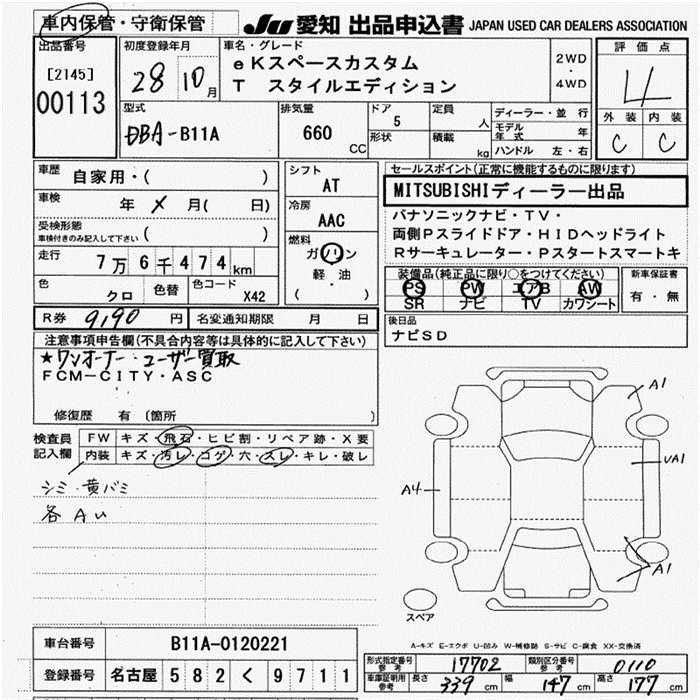 車内保管・守衛保管
JU 愛知 出品申込書 JAPAN USED CAR DEALERS ASSOCIATION
出品番号
[2145]
00113
初度登録年月
28 10月
車名・グレード
eKスペースカスタム
T スタイルエディション
2WD
・
4WD
評価点
4
外装 内装
C C
型式
DBA-B11A
排気量
660
CC
ドア
5
形状
定員
人
積載
kg
ディーラー・並行
モデル年式 年
ハンドル 左・右
車歴
自家用・( )
車検
年 X 月( 日)
受検形態
車検付きのみ記入して下さい ( )
走行
7万6千474km
色
クロ
色替
色コード
X42
シフト
AT
冷房
AAC
燃料
ガソリン
軽・油
( )
セールスポイント(正常に機能するものに限ります)
MITSUBISHIディーラー出品
パナソニックナビ・TV・
両側Pスライドドア・HIDヘッドライト
Rサーキュレーター・Pスタートスマートキ
装備品(純正品に限り○をつけてください)
PS PW エアB AW
SR ナビ TV カワシート
新車保証書
有・無
R券 9,190 円
名変通知期限 月 日
後日品
ナビSD
注意事項申告欄(不具合内容等は具体的に記入して下さい)
★ワンオーナー・ユーザー買取
FCM-CITY・ASC
修復歴 有 (箇所 )
検査員
記入欄
FW キズ・飛石・ヒビ割・リペア跡・X要
内装 キズ・汚レ・コゲ・穴・スレ・キレ・破レ
シミ・黄バミ
各AU
A1
UA1
A4
A1
スペア
A-キズ E-エクボ U-凹み W-補修跡 S-サビ C-腐食 XX-交換済
車台番号 B11A-0120221
登録番号 名古屋 582 く 9711
形式指定番号
参考
17702
類別区分番号
参考
0110
車庫証明用
参考
長さ 339 cm 幅 147 cm 高さ 177 cm